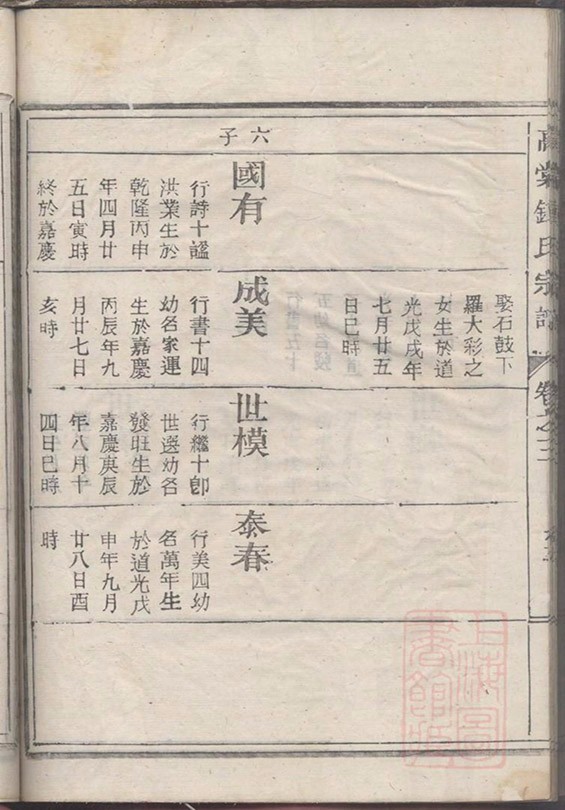 高棠鍾氏宗譜
卷之三
六子
國有
行詩十謚
洪業生於
乾隆丙申
年四月廿
五日寅時
終於嘉慶
娶石鼓下
羅大彩之
女生於道
光戊戌年
七月廿五
日巳時
成美
行書十四
幼名家運
生於嘉慶
丙辰年九
月廿七日
亥時
世模
行繼十卽
世選幼名
發旺生於
嘉慶庚辰
年八月十
四日巳時
泰春
行美四幼
名萬年生
於道光戊
申年九月
廿八日酉
時
上海圖書館藏